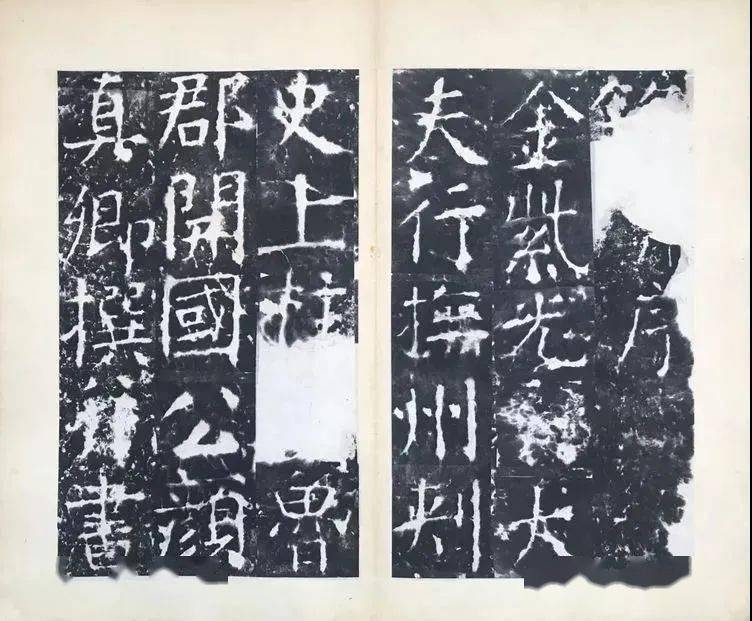 金紫光祿大
夫行撫州刺
史上柱魯
郡開國公顏
真卿撰并書